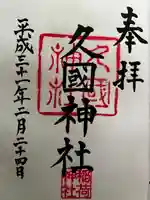 奉拝
久國神社
平成三十一年二月二十四日